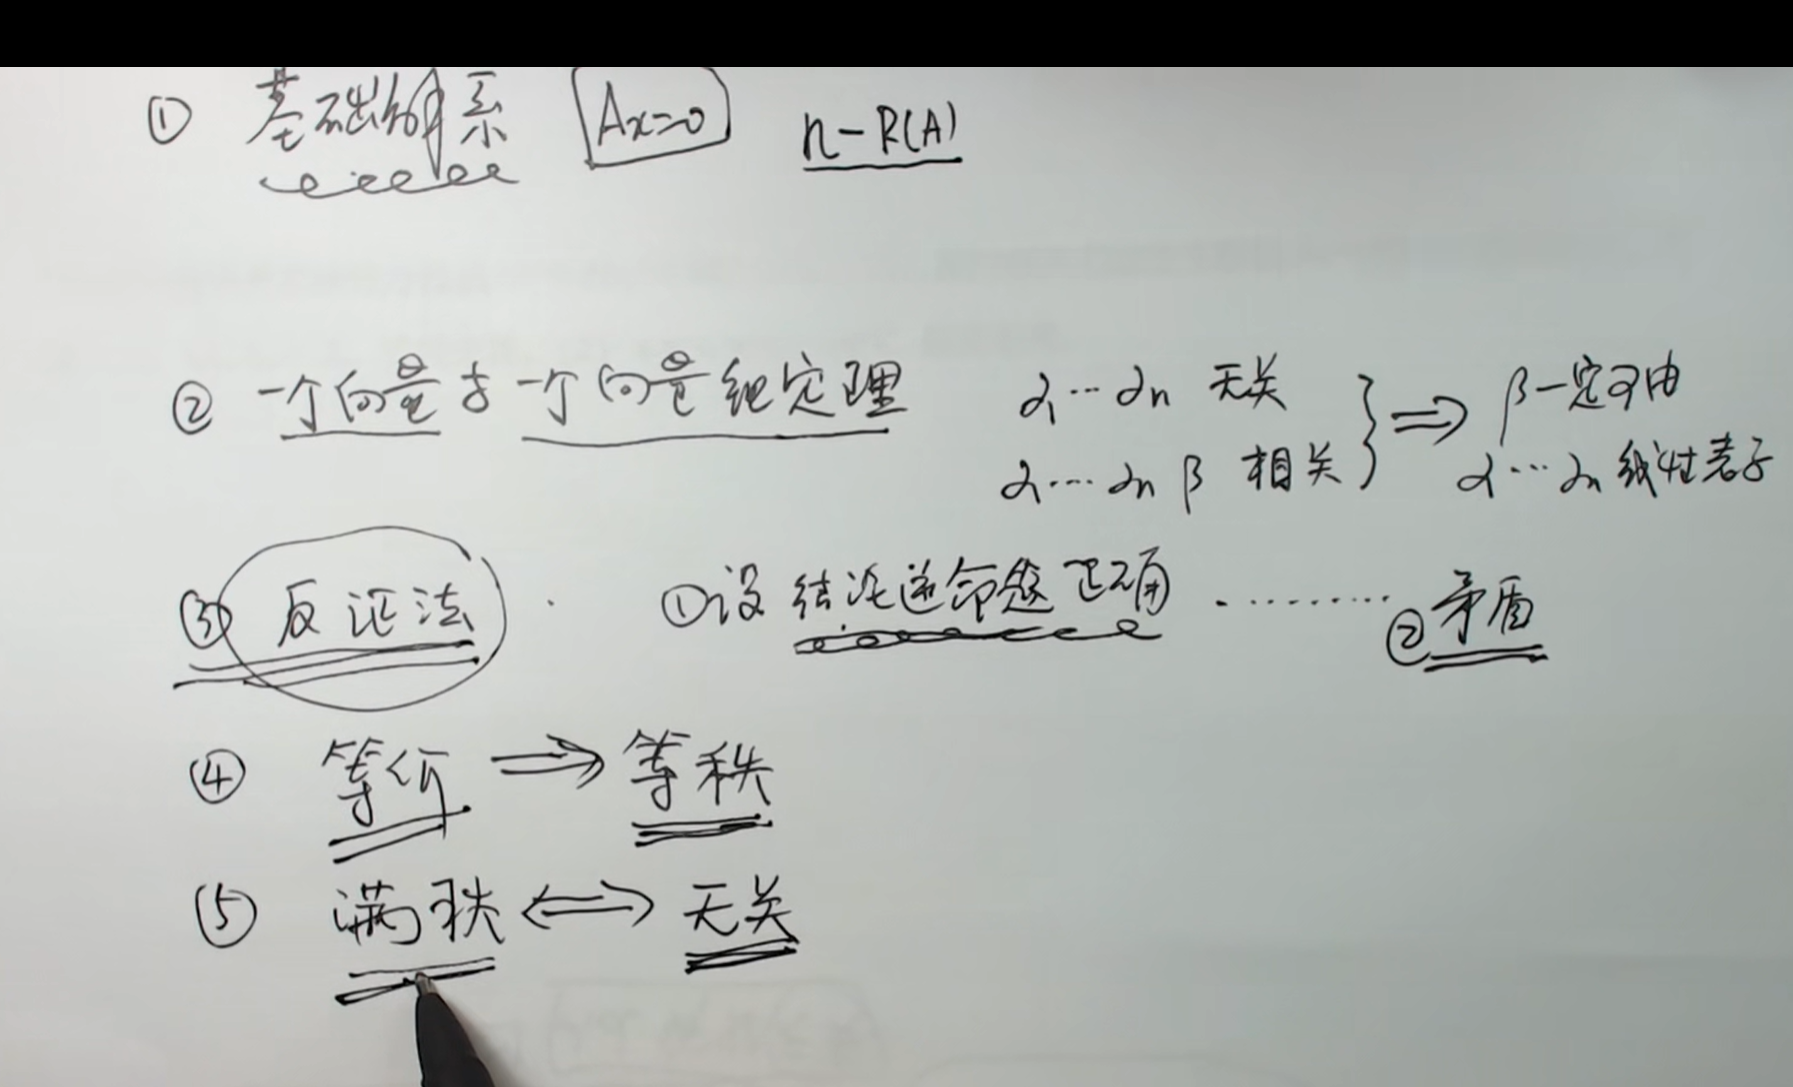 ① 基础解系 Ax=0 n-R(A)
② 一个向量与一个向量组定理 α₁…αn 无关 } ⇒ β一定可由
α₁…αn β 相关 α₁…αn 线性表示
③ 反证法 ①设结论逆命题正确 ……… ②矛盾
④ 等价 ⇒ 等秩
⑤ 满秩 ⇔ 无关